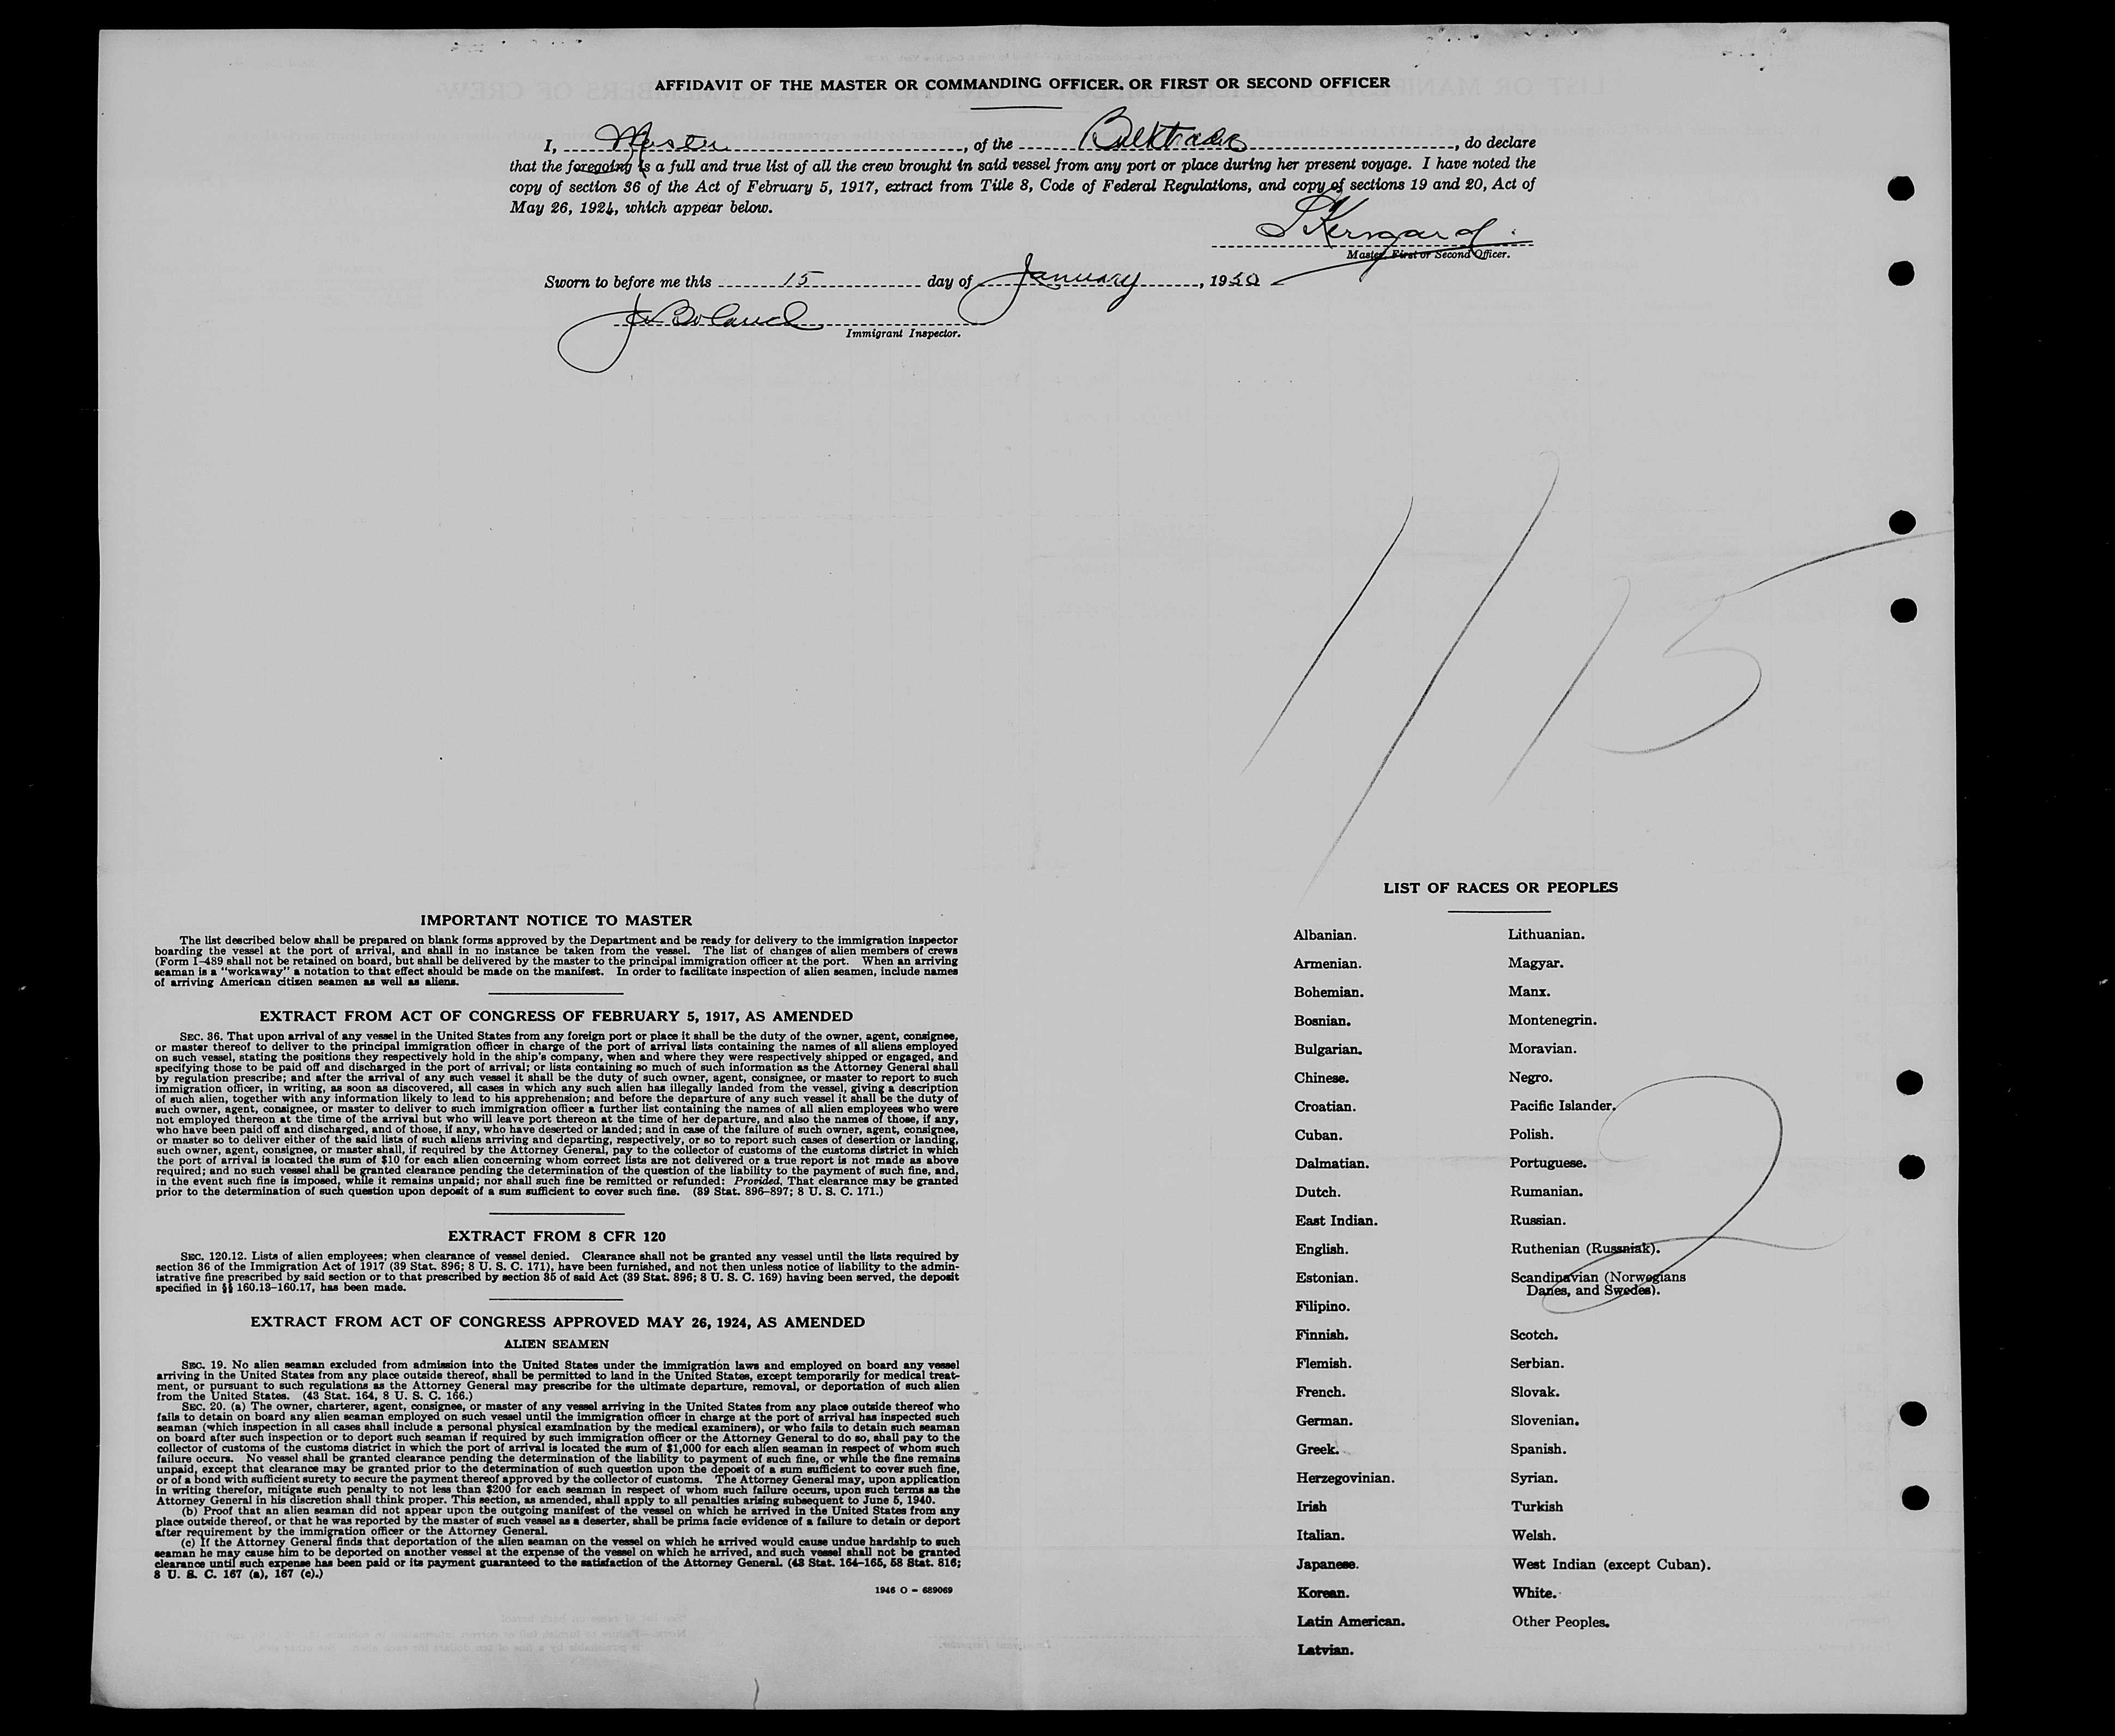 AFFIDAVIT OF THE MASTER OR COMMANDING OFFICER, OR FIRST OR SECOND OFFICER
I, Master, of the Bulktrader, do declare
that the foregoing is a full and true list of all the crew brought in said vessel from any port or place during her present voyage. I have noted the
copy of section 36 of the Act of February 5, 1917, extract from Title 8, Code of Federal Regulations, and copy of sections 19 and 20, Act of
May 26, 1924, which appear below.
Master, First or Second Officer.
Sworn to before me this 15 day of January, 1950
J Boland
Immigrant Inspector.
1/15
2
IMPORTANT NOTICE TO MASTER
The list described below shall be prepared on blank forms approved by the Department and be ready for delivery to the immigration inspector
boarding the vessel at the port of arrival, and shall in no instance be taken from the vessel. The list of changes of alien members of crews
(Form I-489 shall not be retained on board, but shall be delivered by the master to the principal immigration officer at the port. When an arriving
seaman is a "workaway" a notation to that effect should be made on the manifest. In order to facilitate inspection of alien seamen, include names
of arriving American citizen seamen as well as aliens.
EXTRACT FROM ACT OF CONGRESS OF FEBRUARY 5, 1917, AS AMENDED
SEC. 36. That upon arrival of any vessel in the United States from any foreign port or place it shall be the duty of the owner, agent, consignee,
or master thereof to deliver to the principal immigration officer in charge of the port of arrival lists containing the names of all aliens employed
on such vessel, stating the positions they respectively hold in the ship's company, when and where they were respectively shipped or engaged, and
specifying those to be paid off and discharged in the port of arrival; or lists containing so much of such information as the Attorney General shall
by regulation prescribe; and after the arrival of any such vessel it shall be the duty of such owner, agent, consignee, or master to report to such
immigration officer, in writing, as soon as discovered, all cases in which any such alien has illegally landed from the vessel, giving a description
of such alien, together with any information likely to lead to his apprehension; and before the departure of any such vessel it shall be the duty of
such owner, agent, consignee, or master to deliver to such immigration officer a further list containing the names of all alien employees who were
not employed thereon at the time of the arrival but who will leave port thereon at the time of her departure, and also the names of those, if any,
who have been paid off and discharged, and of those, if any, who have deserted or landed; and in case of the failure of such owner, agent, consignee,
or master so to deliver either of the said lists of such aliens arriving and departing, respectively, or so to report such cases of desertion or landing,
such owner, agent, consignee, or master shall, if required by the Attorney General, pay to the collector of customs of the customs district in which
the port of arrival is located the sum of $10 for each alien concerning whom correct lists are not delivered or a true report is not made as above
required; and no such vessel shall be granted clearance pending the determination of the question of the liability to the payment of such fine, and,
in the event such fine is imposed, while it remains unpaid; nor shall such fine be remitted or refunded: Provided, That clearance may be granted
prior to the determination of such question upon deposit of a sum sufficient to cover such fine. (39 Stat. 896-897; 8 U. S. C. 171.)
EXTRACT FROM 8 CFR 120
SEC. 120.12. Lists of alien employees; when clearance of vessel denied. Clearance shall not be granted any vessel until the lists required by
section 36 of the Immigration Act of 1917 (39 Stat. 896; 8 U. S. C. 171), have been furnished, and not then unless notice of liability to the admin-
istrative fine prescribed by said section or to that prescribed by section 35 of said Act (39 Stat. 896; 8 U. S. C. 169) having been served, the deposit
specified in §§ 160.13-160.17, has been made.
EXTRACT FROM ACT OF CONGRESS APPROVED MAY 26, 1924, AS AMENDED
ALIEN SEAMEN
SEC. 19. No alien seaman excluded from admission into the United States under the immigration laws and employed on board any vessel
arriving in the United States from any place outside thereof, shall be permitted to land in the United States, except temporarily for medical treat-
ment, or pursuant to such regulations as the Attorney General may prescribe for the ultimate departure, removal, or deportation of such alien
from the United States. (43 Stat. 164, 8 U. S. C. 166.)
SEC. 20. (a) The owner, charterer, agent, consignee, or master of any vessel arriving in the United States from any place outside thereof who
fails to detain on board any alien seaman employed on such vessel until the immigration officer in charge at the port of arrival has inspected such
seaman (which inspection in all cases shall include a personal physical examination by the medical examiners), or who fails to detain such seaman
on board after such inspection or to deport such seaman if required by such immigration officer or the Attorney General to do so, shall pay to the
collector of customs of the customs district in which the port of arrival is located the sum of $1,000 for each alien seaman in respect of whom such
failure occurs. No vessel shall be granted clearance pending the determination of the liability to payment of such fine, or while the fine remains
unpaid, except that clearance may be granted prior to the determination of such question upon the deposit of a sum sufficient to cover such fine,
or of a bond with sufficient surety to secure the payment thereof approved by the collector of customs. The Attorney General may, upon application
in writing therefor, mitigate such penalty to not less than $200 for each seaman in respect of whom such failure occurs, upon such terms as the
Attorney General in his discretion shall think proper. This section, as amended, shall apply to all penalties arising subsequent to June 5, 1940.
(b) Proof that an alien seaman did not appear upon the outgoing manifest of the vessel on which he arrived in the United States from any
place outside thereof, or that he was reported by the master of such vessel as a deserter, shall be prima facie evidence of a failure to detain or deport
after requirement by the immigration officer or the Attorney General.
(c) If the Attorney General finds that deportation of the alien seaman on the vessel on which he arrived would cause undue hardship to such
seaman he may cause him to be deported on another vessel at the expense of the vessel on which he arrived, and such vessel shall not be granted
clearance until such expense has been paid or its payment guaranteed to the satisfaction of the Attorney General. (43 Stat. 164-165, 58 Stat. 816;
8 U. S. C. 167 (a), 167 (c).)
1946 O - 689069
LIST OF RACES OR PEOPLES
Albanian.
Armenian.
Bohemian.
Bosnian.
Bulgarian.
Chinese.
Croatian.
Cuban.
Dalmatian.
Dutch.
East Indian.
English.
Estonian.
Filipino.
Finnish.
Flemish.
French.
German.
Greek.
Herzegovinian.
Irish
Italian.
Japanese.
Korean.
Latin American.
Latvian.
Lithuanian.
Magyar.
Manx.
Montenegrin.
Moravian.
Negro.
Pacific Islander.
Polish.
Portuguese.
Rumanian.
Russian.
Ruthenian (Russniak).
Scandinavian (Norwegians
Danes, and Swedes).
Scotch.
Serbian.
Slovak.
Slovenian.
Spanish.
Syrian.
Turkish
Welsh.
West Indian (except Cuban).
White.
Other Peoples.